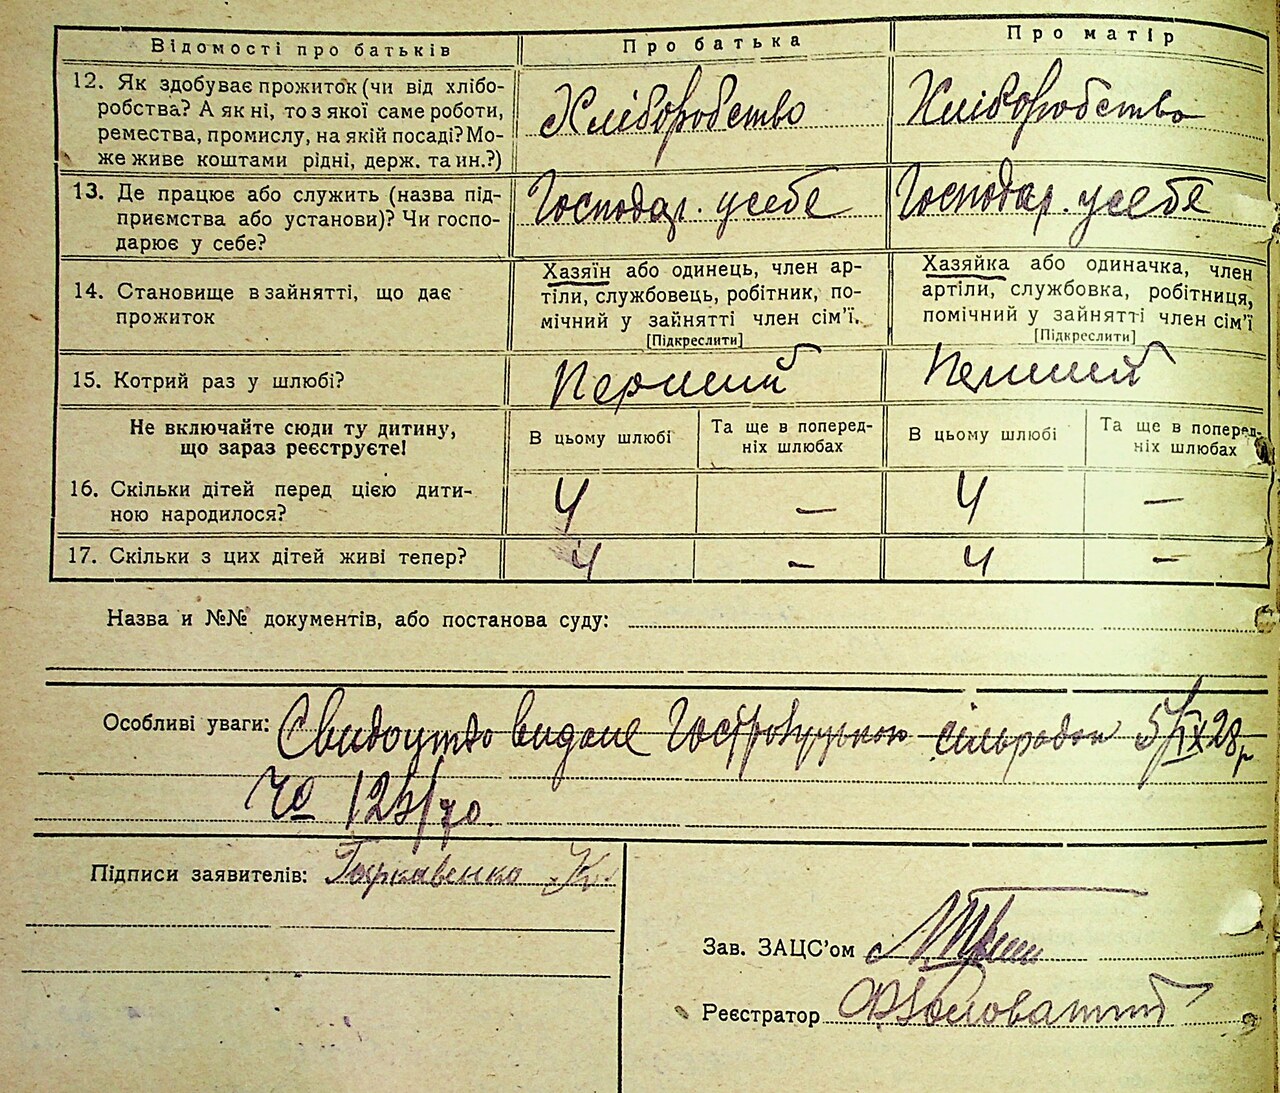 Відомості про батьків
Про батька
Про матір
12. Як здобуває прожиток (чи від хлібо-
робства? А як ні, то з якої саме роботи,
ремества, промислу, на якій посаді? Мо-
же живе коштами рідні, держ. та ин.?)
Хліборобство
Хліборобство
13. Де працює або служить (назва під-
приємства або установи)? Чи госпо-
дарює у себе?
Господар. у себе
Господар. у себе
14. Становище в зайнятті, що дає
прожиток
Хазяїн або одинець, член ар-
тіли, службовець, робітник, по-
мічний у зайнятті член сім'ї.
[Підкреслити]
Хазяйка або одиначка, член
артіли, службовка, робітниця,
помічний у зайнятті член сім'ї
[Підкреслити]
15. Котрий раз у шлюбі?
Перший
Перший
Не включайте сюди ту дитину,
що зараз реєструєте!
В цьому шлюбі
Та ще в поперед-
ніх шлюбах
В цьому шлюбі
Та ще в поперед-
ніх шлюбах
16. Скільки дітей перед цією дити-
ною народилося?
4
–
4
–
17. Скільки з цих дітей живі тепер?
4
–
4
–
Назва и №№ документів, або постанова суду:
Особливі уваги: Свидоцтво видане сільрадою 5/IX 28 р
№ 123/70.
Підписи заявителів: Гаркавенко К
Зав. ЗАЦС'ом
Реєстратор